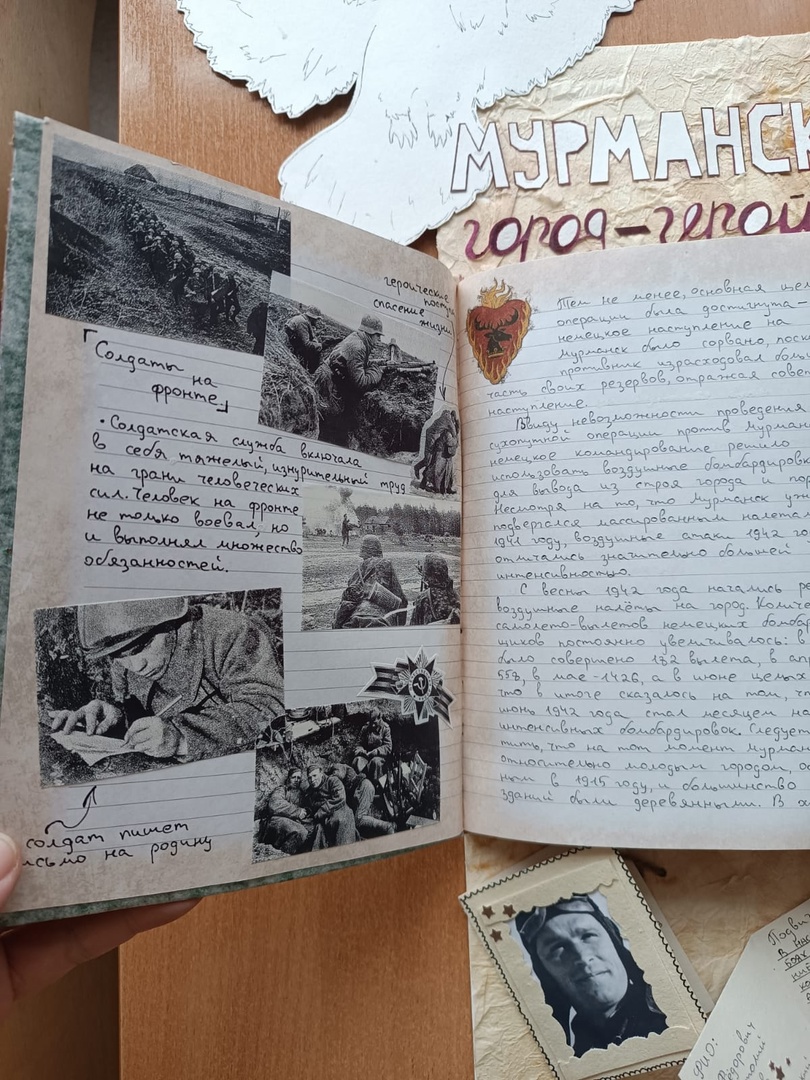 МУРМАНСК
город-герой
героические
спасение жизни
「Солдаты
на
фронте」
• Солдатская служба включала
в себя тяжелый, изнурительный труд
на грани человеческих
сил. Человек на фронте
не только воевал, но
и выполнял множество
обязанностей.
солдат пишет
на родину
Тем не менее, основная
операции была достигнута –
немецкое наступление на
Мурманск было сорвано,
противник израсходовал
часть своих резервов, отражая
наступление.
Ввиду невозможности проведения
сухопутной операции против
немецкое командирование решило
использовать воздушные бомбардировк
для вывода из строя города и
Несмотря на то, что Мурманск
подвергался массированным
1941 году, воздушные атаки 1942
отличались значительно большей
интенсивностью.
С весны 1942 года начались
воздушные налёты на город.
самолето-вылетов немецких
щиков постоянно увеличивалось: в
было совершено 182 вылета, в
558, в мае - 1426, а в июне
что в итоге сказалось на том,
июнь 1942 года стал месяцем
интенсивных бомбардировок. Следует
тить, что на тот момент
относительно молодым городом,
ным в 1915 году, и большинство
зданий были деревянными. В
ФИО: